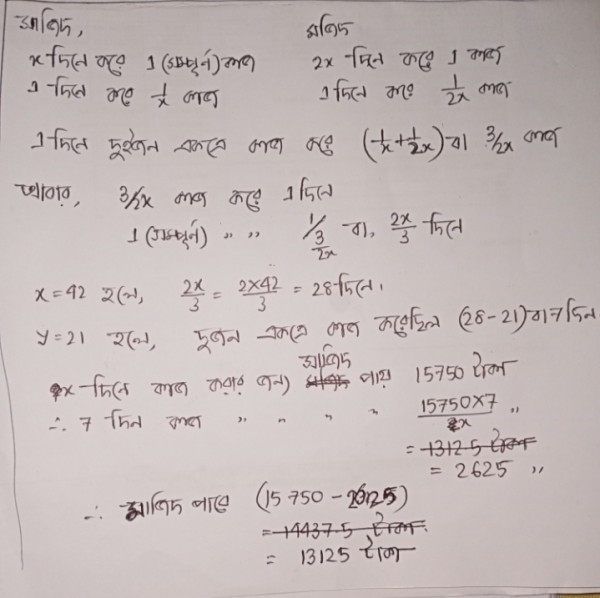 সাজিদ, মজিদ
x দিনে করে 1 (সম্পূর্ন) কাজ 2x দিনে করে 1 কাজ
1 দিনে করে 1/x কাজ 1 দিনে করে 1/2x কাজ
1 দিনে দুইজন একত্রে কাজ করে (1/x + 1/2x) বা 3/2x কাজ
আবার, 3/2x কাজ করে 1 দিনে
1 (সম্পূর্ন) " " 1/(3/2x) বা, 2x/3 দিনে
x = 42 হলে, 2x/3 = 2×42/3 = 28 দিনে।
y = 21 হলে, দুজন একত্রে কাজ করেছিল (28-21) বা 7 দিন
x-দিনে কাজ করার জন্য সাজিদ পায় 15750 টাকা
∴ 7 দিন কাজ " " " " 15750×7/x "
= 1312.5 টাকা
= 2625 "
∴ মাজিদ পাবে (15750 - 2625)
= 14437.5 টাকা
= 13125 টাকা